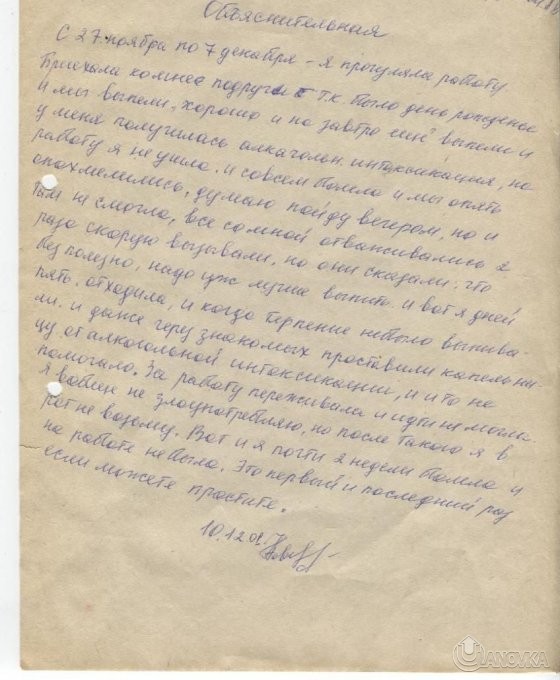 Объяснительная
С 27 ноября по 7 декабря - я прогуляла работу
Приехала комнее подруга т.к. было день рожденье
и мы выпели, хорошо и на завтро ещё выпели и
у меня получилась алкагольн. интоксикация, на
работу я не ушла. и совсем болела и мы опять
опохмелились, думаю пойду вечером, но и
там не смогла, все со мной отваживались 2
раза скорую вызывали, но они сказали: что
безполезно, надо уж лучше выпить и вот я дней
пять. отходила, и когда терпение небыло выпива-
ли. и даже через знакомых проставили капельни-
цу от алкогольной интоксикации, и и то не
помогало. За работу переживала и идти не могла
я вобщем не злоупотребляю, но после такого я в
рот не возьму. Вот и я почти 2 недели болела и
на работе не была. Это первый и последний раз
если можете простите.
10.12
UANOVKA